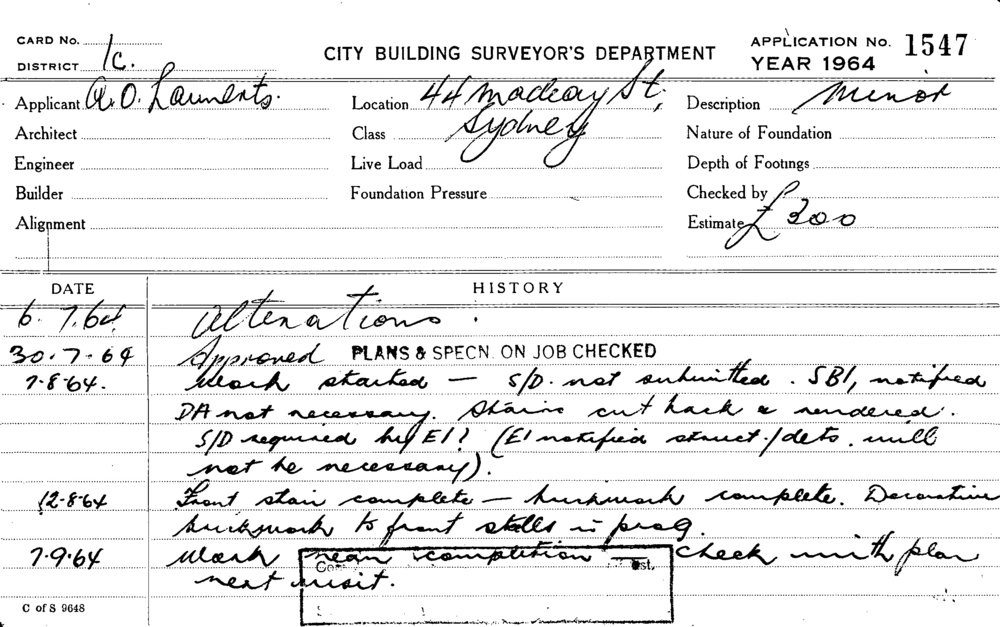 CARD No.
DISTRICT 1c.
CITY BUILDING SURVEYOR'S DEPARTMENT
APPLICATION No. 1547
YEAR 1964
Applicant A.O. Laurents. Location 44 Macleay St, Description Minor
Architect Class Sydney Nature of Foundation
Engineer Live Load Depth of Footings
Builder Foundation Pressure Checked by
Alignment Estimate £300
DATE HISTORY
6.7.64 Alterations.
30.7.64 Approved PLANS & SPECN. ON JOB CHECKED
7.8.64. Work started — S/D. not submitted. SBI, notified
DA not necessary. Stairs cut back & rendered.
S/D required by EI? (EI notified struct./dets. will
not be necessary).
12.8.64 Front stair complete — brickwork complete. Decorative
brickwork to front in prog.
7.9.64 Work near completion — Check with plan
next visit.
C of S 9648